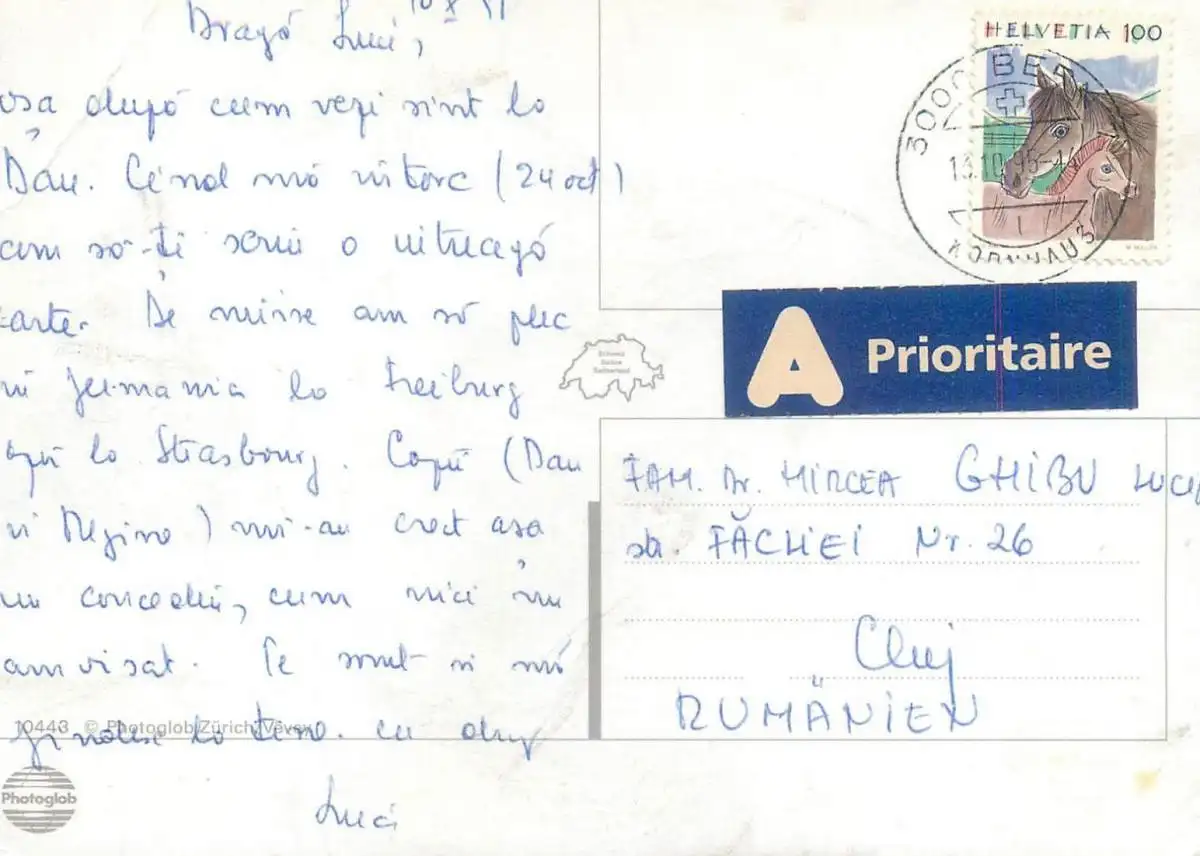 Dragă Luci,
așa după cum vezi sînt la
Dan. Cînd mă întorc (24 oct)
am să-ți scriu o întreagă
carte. De mîine am să plec
în Germania la Freiburg
apoi la Strasbourg. Copii (Dan
și Regina) mi-au creat așa
un concediu, cum nici nu
am visat. Te sărut și mă
gîndesc la tine. cu drag
Luci
10443 © Photoglob Zürich/Vevey
Photoglob
HELVETIA 100
3000 BERN
13.10.
Schweiz
Suisse
Switzerland
A Prioritaire
FAM. Dr. MIRCEA GHIBU LUCI
str. FĂCLIEI Nr. 26
Cluj
RUMÄNIEN